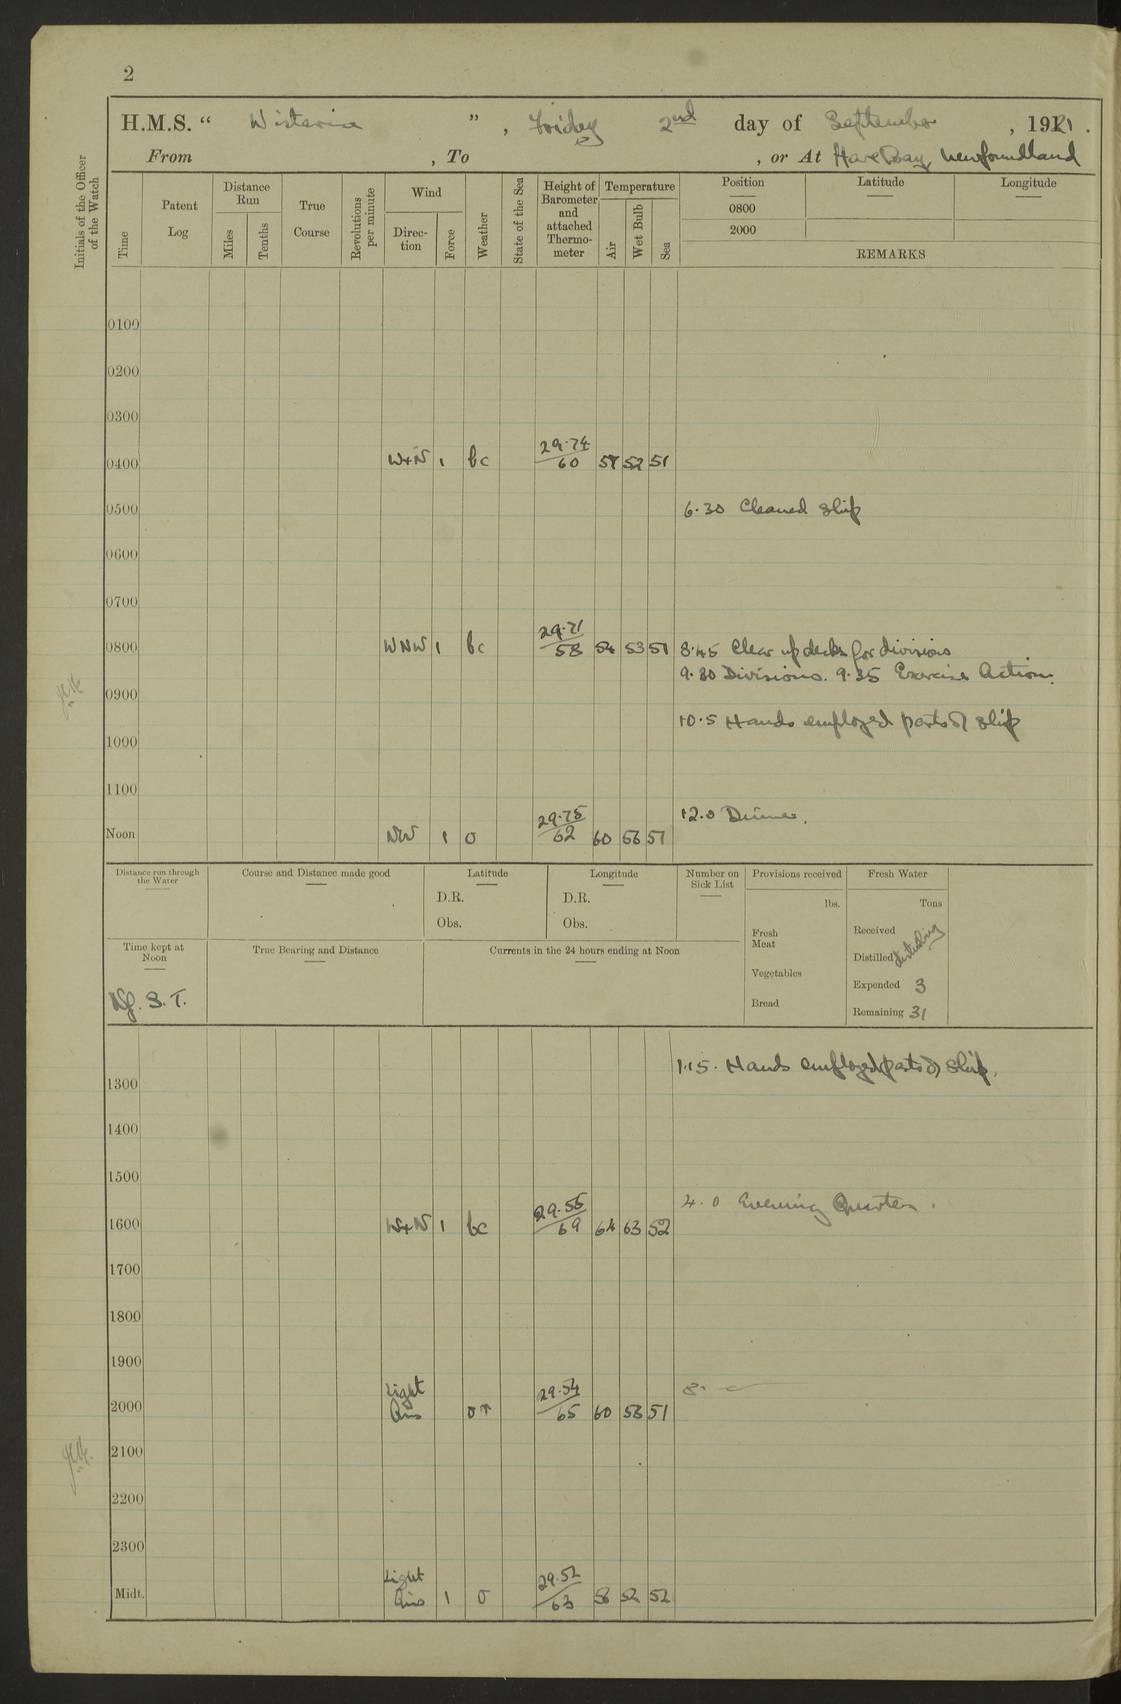 2
H.M.S. “ Wistaria ” , Friday 2nd day of September , 1921 .
From , To , or At Hare Bay, Newfoundland
Initials of the Officer of the Watch
Time
Patent Log
Distance Run
Miles
Tenths
True Course
Revolutions per minute
Wind
Direc-tion
Force
Weather
State of the Sea
Height of Barometer and attached Thermo-meter
Temperature
Air
Wet Bulb
Sea
Position
Latitude
Longitude
0800
2000
REMARKS
0100
0200
0300
0400 W+N 1 bc 29.74/60 52 51
0500 6.30 Cleaned ship
0600
0700
0800 WNW 1 bc 29.71/58 54 53 51 8.45 Clear up decks for divisions
9.30 Divisions. 9.35 Exercise Action.
0900
10.5 Hands employed parts of ship
1000
1100
12.0 Dinner.
Noon NW 1 o 29.75/62 60 56 51
Distance run through the Water
Course and Distance made good
Latitude
D.R.
Obs.
Longitude
D.R.
Obs.
Number on Sick List
Provisions received
lbs.
Fresh Meat
Vegetables
Bread
Fresh Water
Tons
Received
Distilled distilling
Expended 3
Remaining 31
Time kept at Noon
Nf. S.T.
True Bearing and Distance
Currents in the 24 hours ending at Noon
1.15. Hands employed parts of ship.
1300
1400
1500
4.0 Evening Quarters.
1600 W+N 1 bc 29.55/69 64 63 52
1700
1800
1900
8.
2000 Light Airs 29.54/65 60 58 51
2100
2200
2300
Midt. Light Airs 1 o 29.52/63 52 52